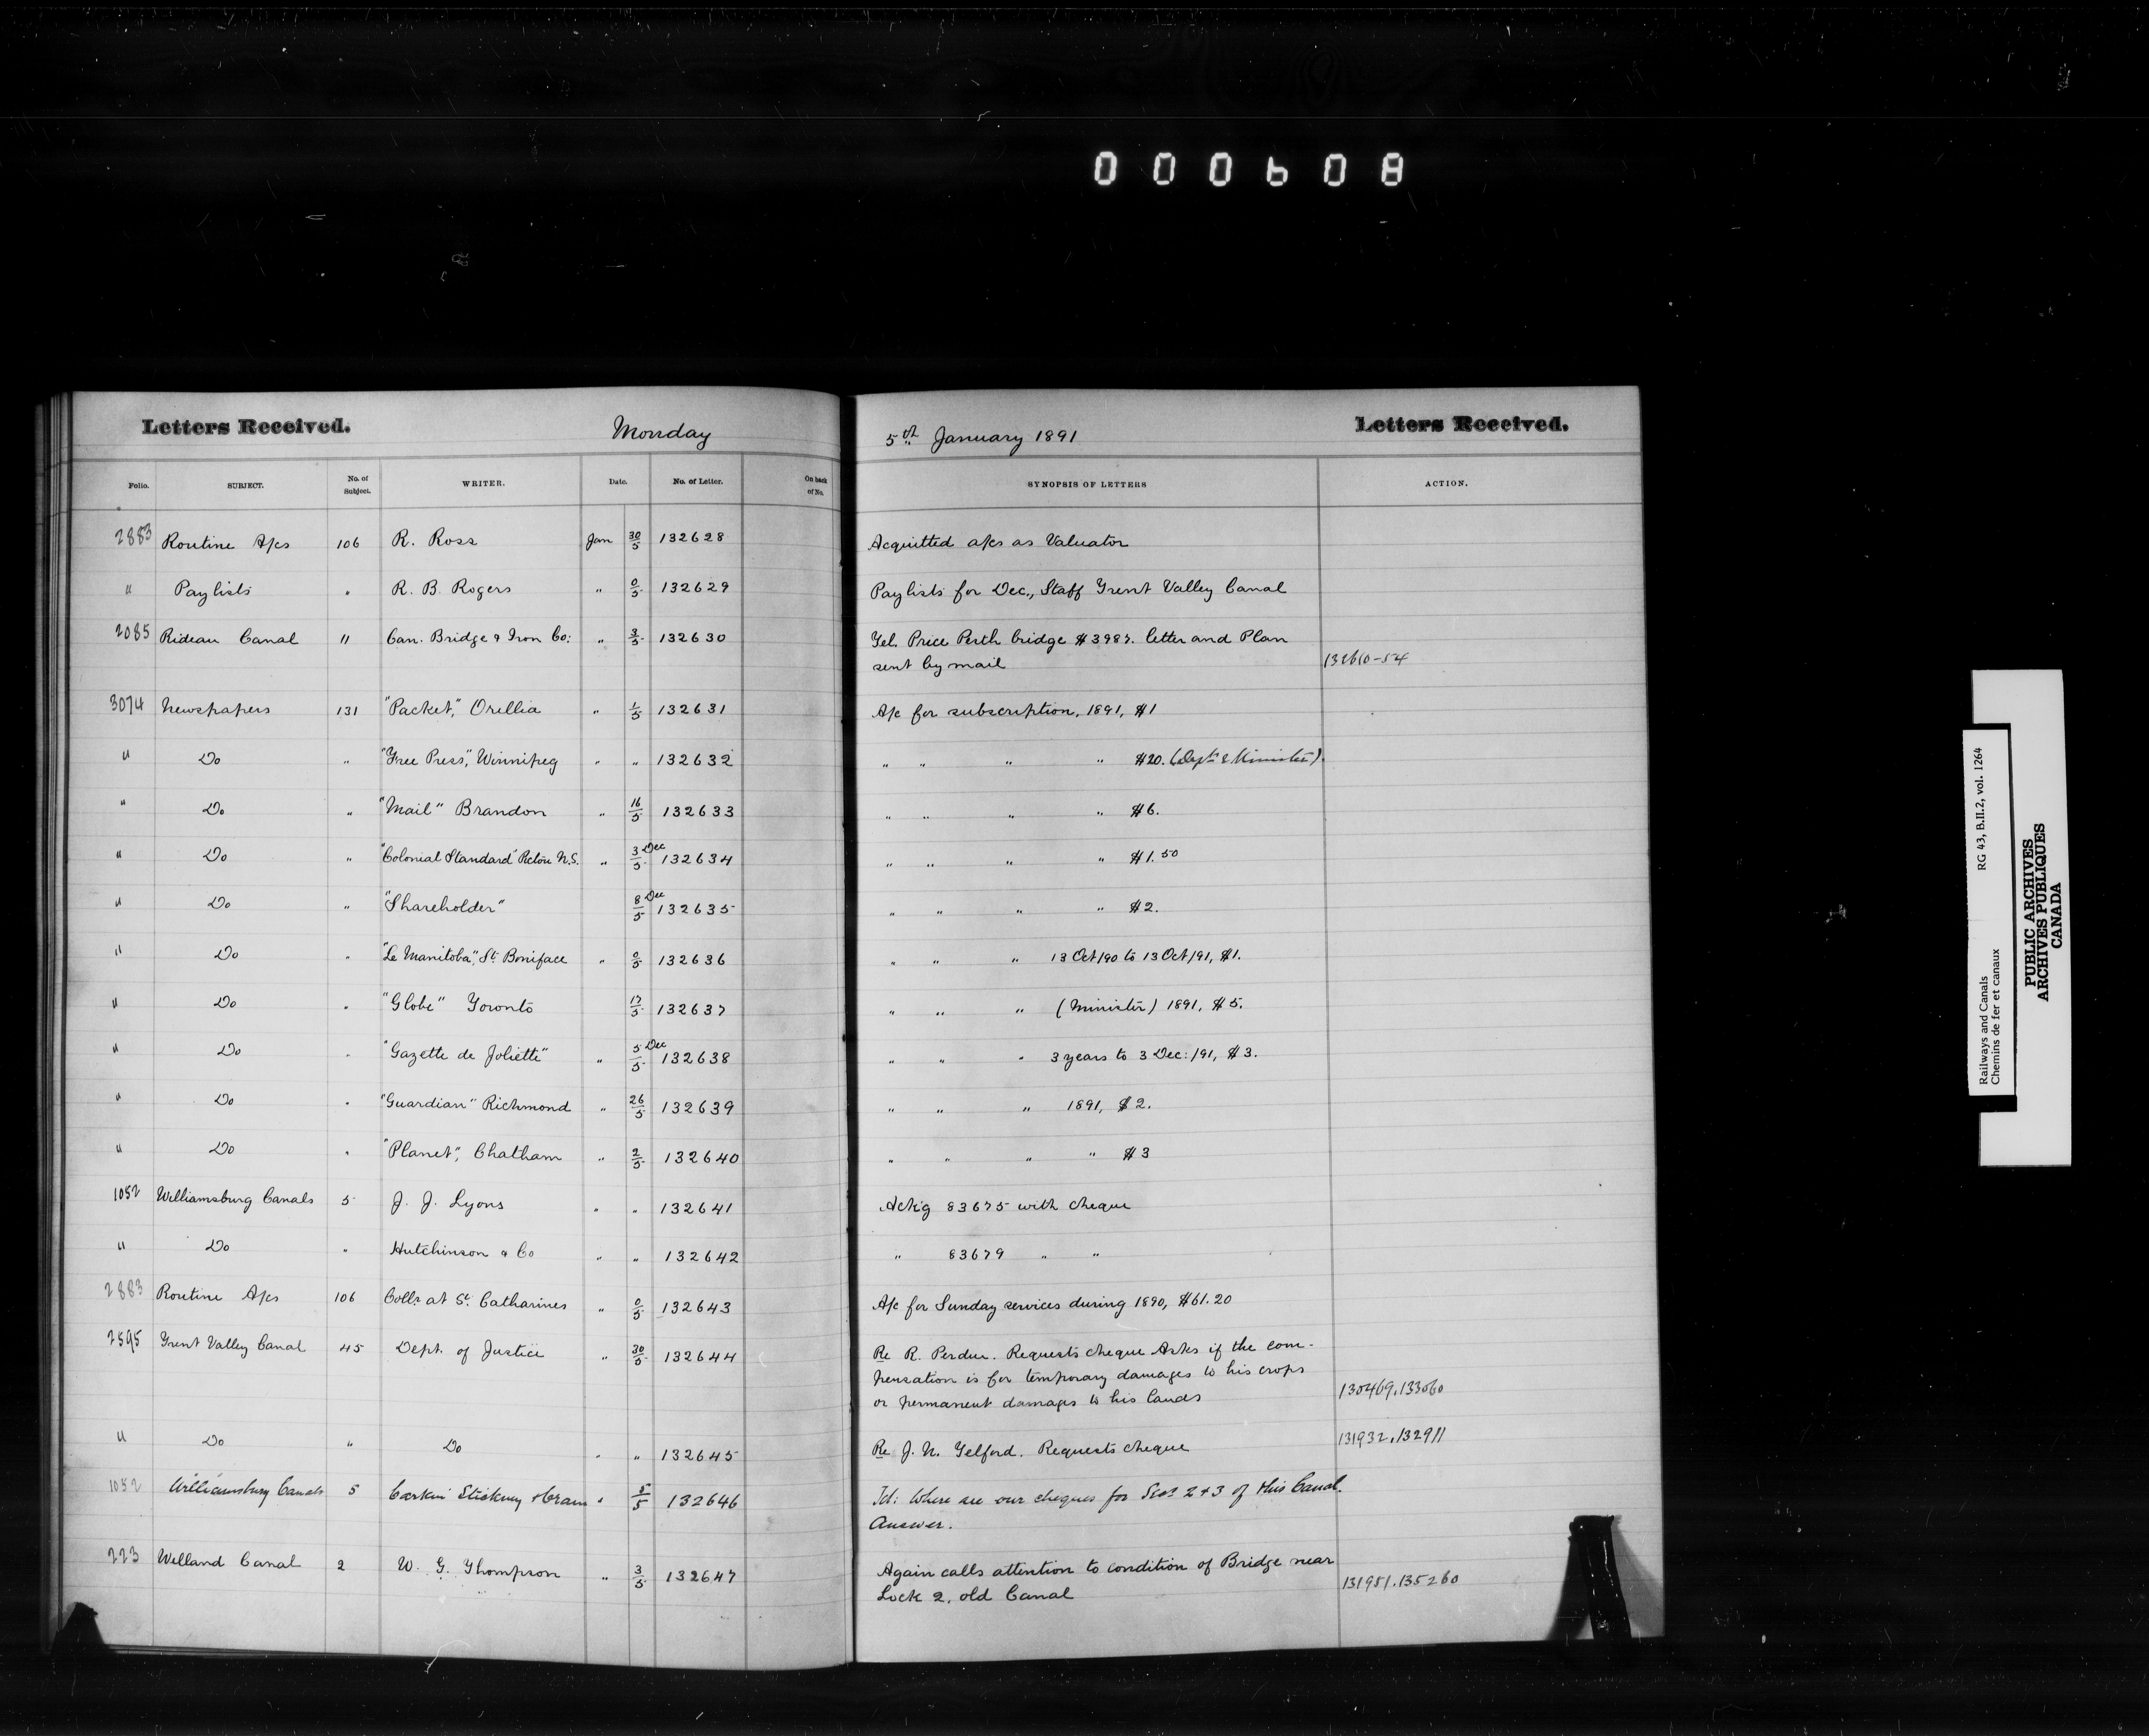 000608
Letters Received. Monday 5th January 1891 Letters Received.
Folio. SUBJECT. No. of Subject. WRITER. Date. No. of Letter. On back of No. SYNOPSIS OF LETTERS ACTION.
2883 Routine A/cs 106 R. Ross Jan 30/5 132628 Acquitted a/cs as Valuator
" Paylists " R. B. Rogers " 0/5 132629 Paylists for Dec., Staff Trent Valley Canal
2085 Rideau Canal 11 Can. Bridge & Iron Co: " 3/5 132630 Tel. Price Perth bridge $3987. letter and Plan
sent by mail 132610-54
3074 Newspapers 131 "Packet," Orillia " 1/5 132631 A/c for subscription, 1891, $1
" Do " "Free Press," Winnipeg " " 132632 " " " " $20. (Dept & Minister).
" Do " "Mail" Brandon " 16/5 132633 " " " " $6.
" Do " "Colonial Standard" Pictou N.S. " 3 Dec/5 132634 " " " " $1.50
" Do " "Shareholder" 8 Dec/5 132635 " " " " $2.
" Do " "Le Manitoba," St. Boniface " 0/5 132636 " " " 13 Oct/90 to 13 Oct/91, $1.
" Do " "Globe" Toronto 17/5 132637 " " " (Minister) 1891, $5.
" Do " "Gazette de Joliette" " 5 Dec/5 132638 " " " 3 years to 3 Dec:/91, $3.
" Do " "Guardian" Richmond " 26/5 132639 " " " 1891, $2.
" Do " "Planet", Chatham " 2/5 132640 " " " " $3
1052 Williamsburg Canals 5 J. J. Lyons " " 132641 Ack'g 83675 with cheque
" Do " Hutchinson & Co " " 132642 " 83679 " "
2883 Routine A/cs 106 Collr at St. Catharines " 0/5 132643 A/c for Sunday services during 1890, $61.20
2595 Trent Valley Canal 45 Dept. of Justice " 30/5 132644 Re R. Perdue. Requests cheque Asks if the com-
pensation is for temporary damages to his crops
or permanent damages to his lands 130469.133060
" Do " Do " " 132645 Re J. N. Telford. Requests cheque 131932.132911
1052 Williamsburg Canals 5 Stickney & Cram " 5/5 132646 Tel: Where are our cheques for Secs 2 & 3 of this Canal.
Answer.
223 Welland Canal 2 W. G. Thompson " 3/5 132647 Again calls attention to condition of Bridge near
Lock 2, old Canal 131951.135260
Railways and Canals RG 43, B.II.2, vol. 1264
Chemins de fer et canaux
PUBLIC ARCHIVES
ARCHIVES PUBLIQUES
CANADA